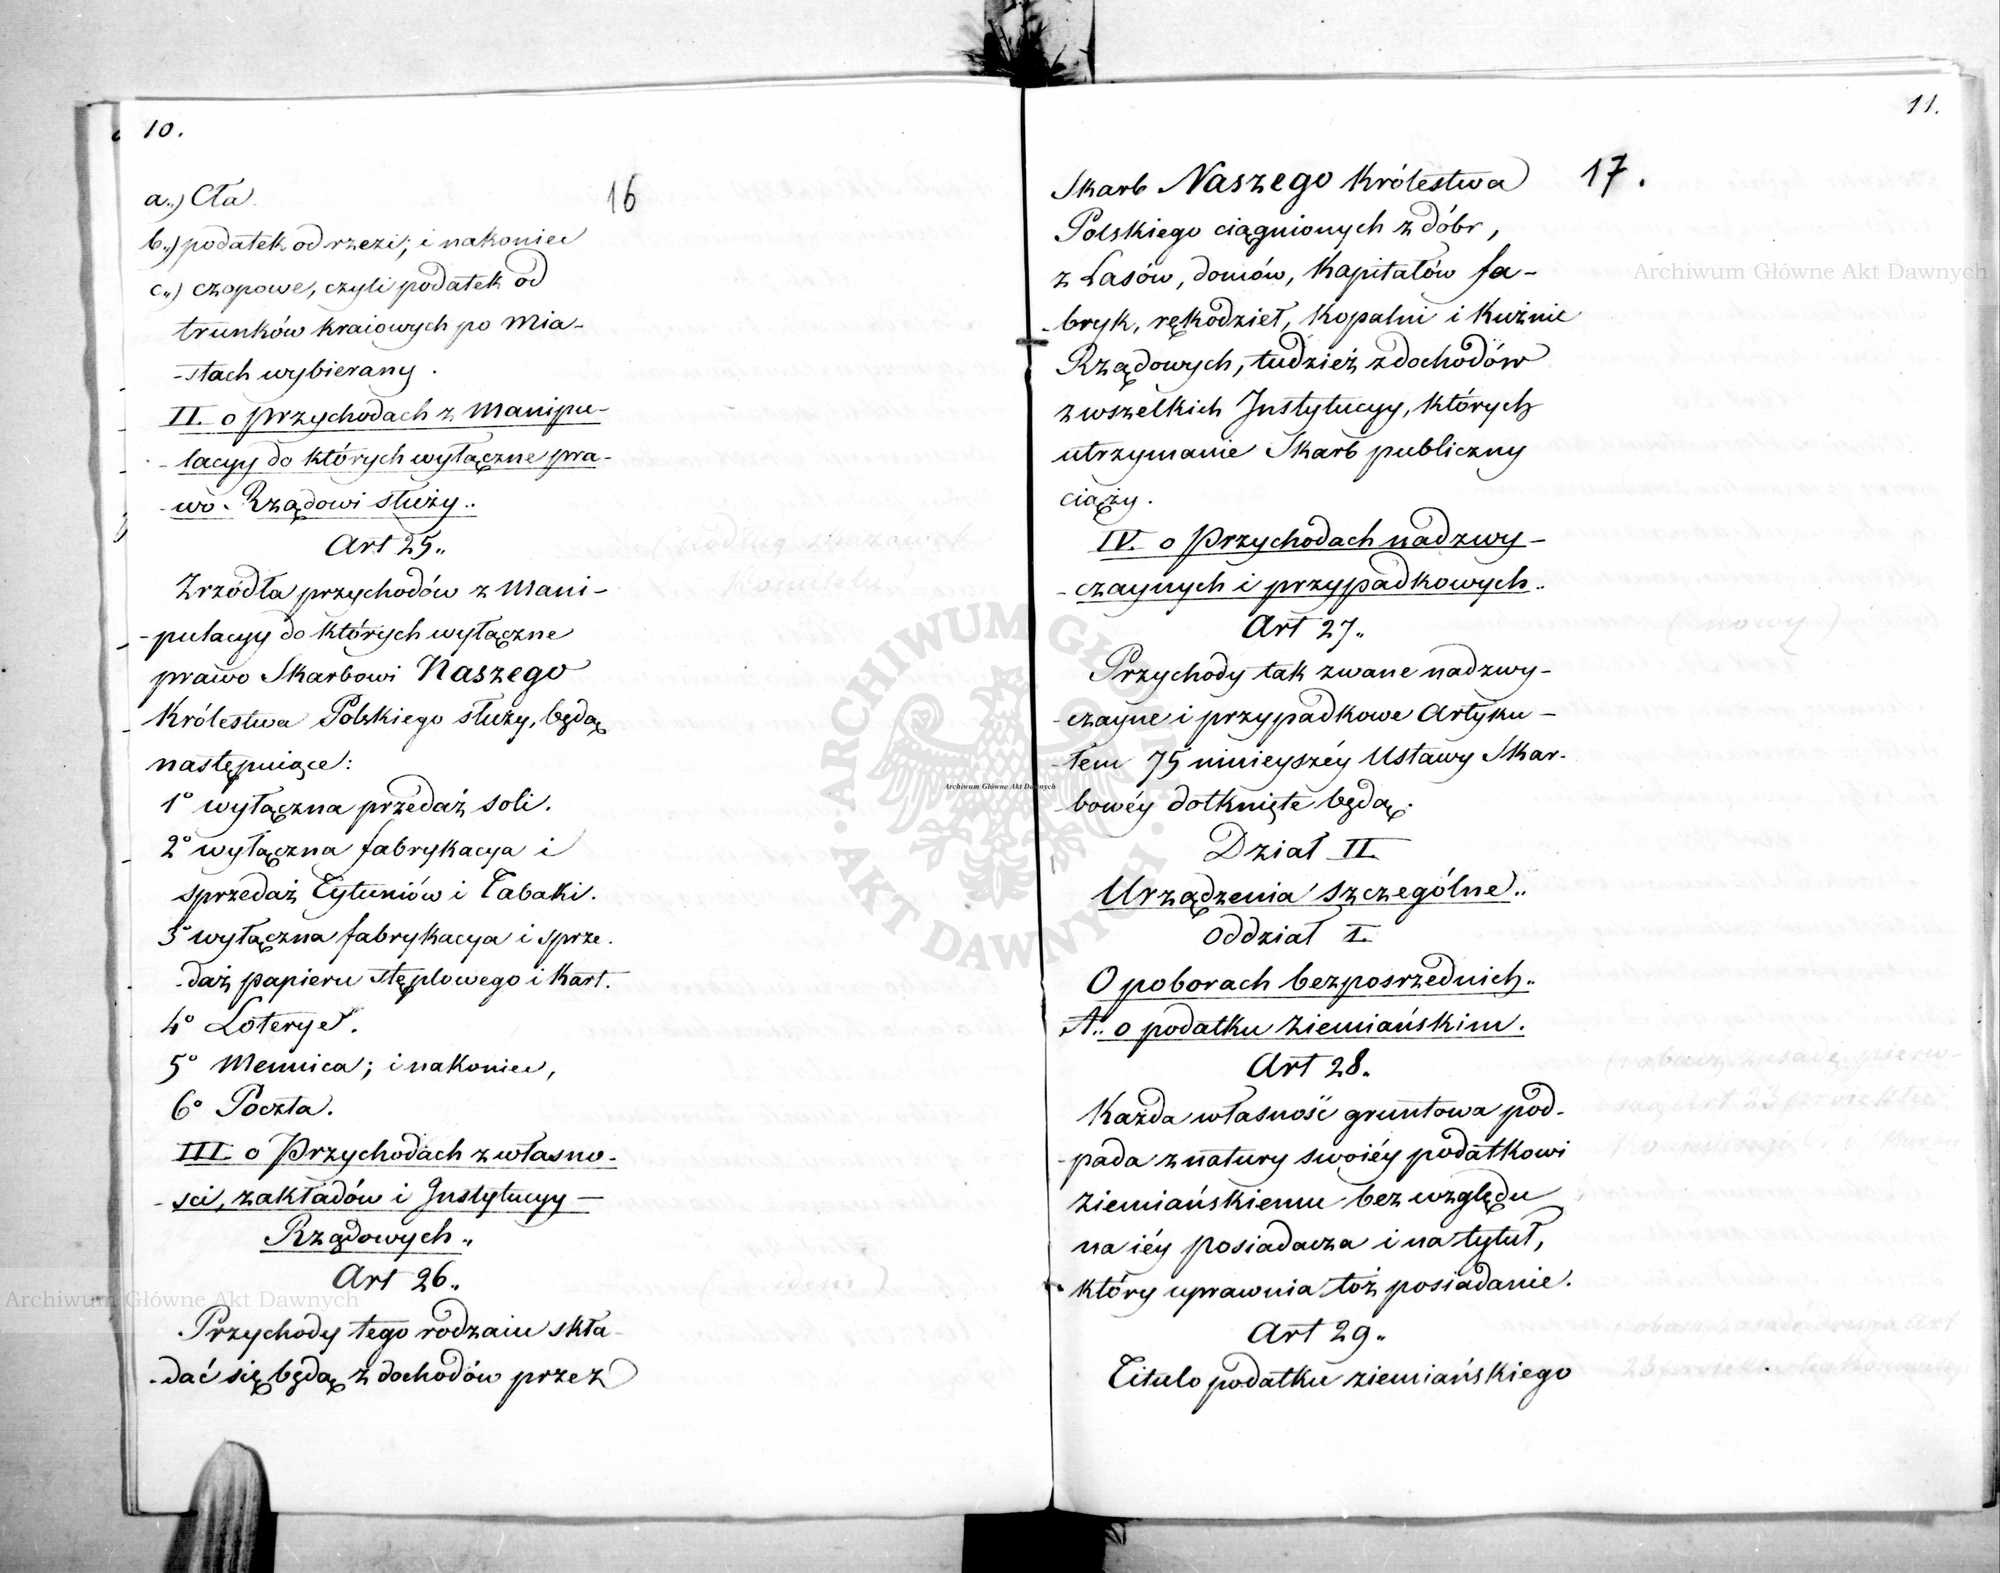 10.
16
a.,) Cła
b.,) podatek od rzezi; i nakoniec
c.,) czopowe, czyli podatek od
trunków kraiowych po Mia-
-stach wybierany.
II. o Przychodach z Manipu-
-lacyy do których wyłączne pra-
-wo Rządowi służy.
Art 25.
Zrzódła przychodów z Mani-
-pulacyy do których wyłączne
prawo Skarbowi Naszego
Królestwa Polskiego służy, będą
następuiące:
1° wyłączna przedaż soli.
2° wyłączna fabrykacya i
sprzedaż Tytuniów i Tabaki.
3° wyłączna fabrykacya i sprze-
-daż papieru stęplowego i Kart.
4° Loterye.
5° Mennica; i nakoniec,
6° Poczta.
III. o Przychodach z własno-
-sci, zakładów i Instytucyy
Rządowych.
Art 26.
Przychody tego rodzaiu skła-
-dać się będą z dochodów przez
11.
17.
Skarb Naszego Królestwa
Polskiego ciągnionych z dóbr,
z Lasów, domów, Kapitałów fa-
-bryk, rękodzieł, Kopalni i Kuźnic
Rządowych, tudzież z dochodów
z wszelkich Instytucyy, których
utrzymanie Skarb publiczny
ciąży.
IV. o Przychodach nadzwy-
-czaynych i przypadkowych.
Art 27.
Przychody tak zwane nadzwy-
-czayne i przypadkowe Artyku-
-łem 75 ninieyszéy Ustawy Skar-
-bowéy dotknięte będą.
Dział II.
Urządzenia szczególne.
Oddział I.
O poborach bezposrzednich.
A. o podatku ziemiańskim.
Art 28.
Każda własność gruntowa pod-
-pada z natury swoiéy podatkowi
ziemiańskiemu bez względu
na iéy posiadacza i na tytuł,
który uprawnia toż posiadanie.
Art 29.
Titulo podatku ziemiańskiego
Archiwum Główne Akt Dawnych
Archiwum Główne Akt Dawnych
Archiwum Główne Akt Dawnych
ARCHIWUM GŁÓWNE AKT DAWNYCH